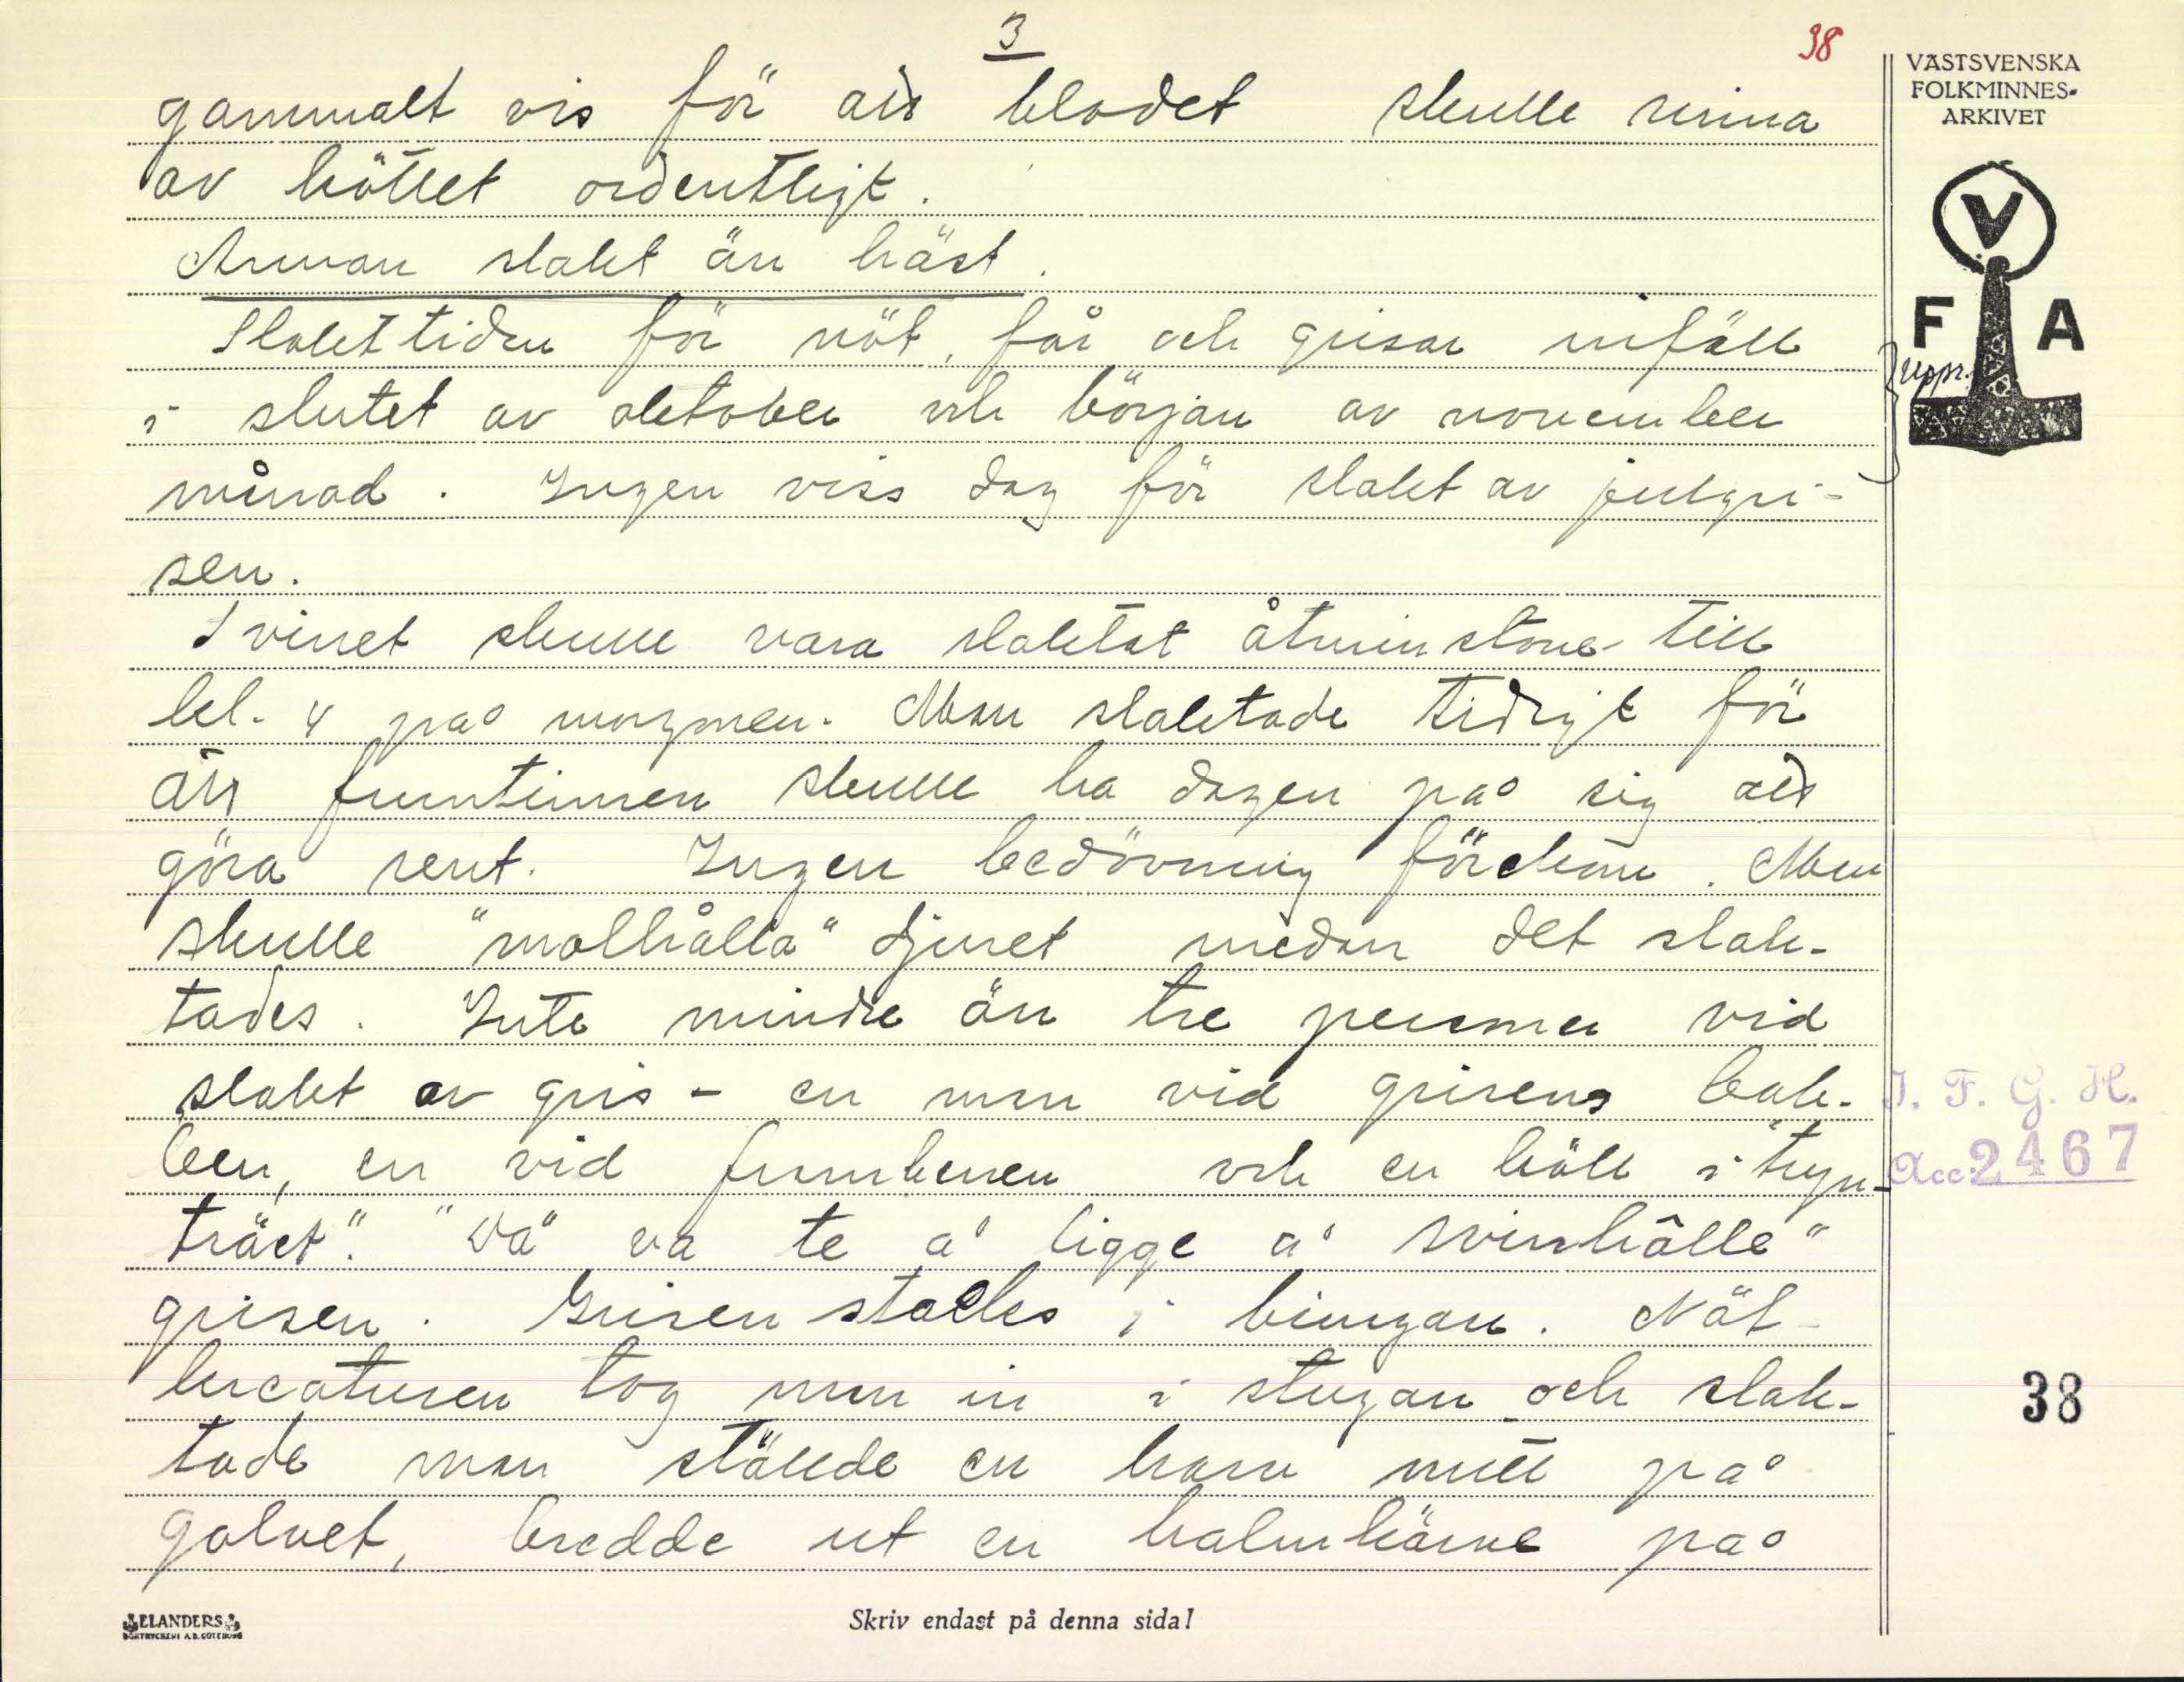 3
38
VÄSTSVENSKA
FOLKMINNES-
ARKIVET
gammalt vis för att blodet skulle rinna
av köttet ordentligt.
Annan slakt än häst.
V
F A
Slakttiden för nöt, får och grisar inföll
uppr.
i slutet av oktober och början av november
månad. Ingen viss dag för slakt av julgri-
sen.
Svinet skulle vara slaktat åtminstone till
kl. 4 på morgonen. Man slaktade tidigt för
att fruntimren skulle ha dagen på sig att
göra rent. Ingen bedövning förekom. Man
skulle "molhålla" djuret medan det slak-
tades. Inte mindre än tre personer vid
slakt av gris - en man vid grisens bak-
ben, en vid frambenen och en höll i "tryn-
träet". "Dä va te å ligge å svinhålle"
grisen. Grisen stacks i bingan. Nöt-
kreaturen tog man in i stugan och slak-
tade man ställde en ho mitt på
golvet, bredde ut en halmkärve på
I. F. G. H.
Acc. 2467
38
ELANDERS
BOKTRYCKERI A.B. GÖTEBORG
Skriv endast på denna sida!